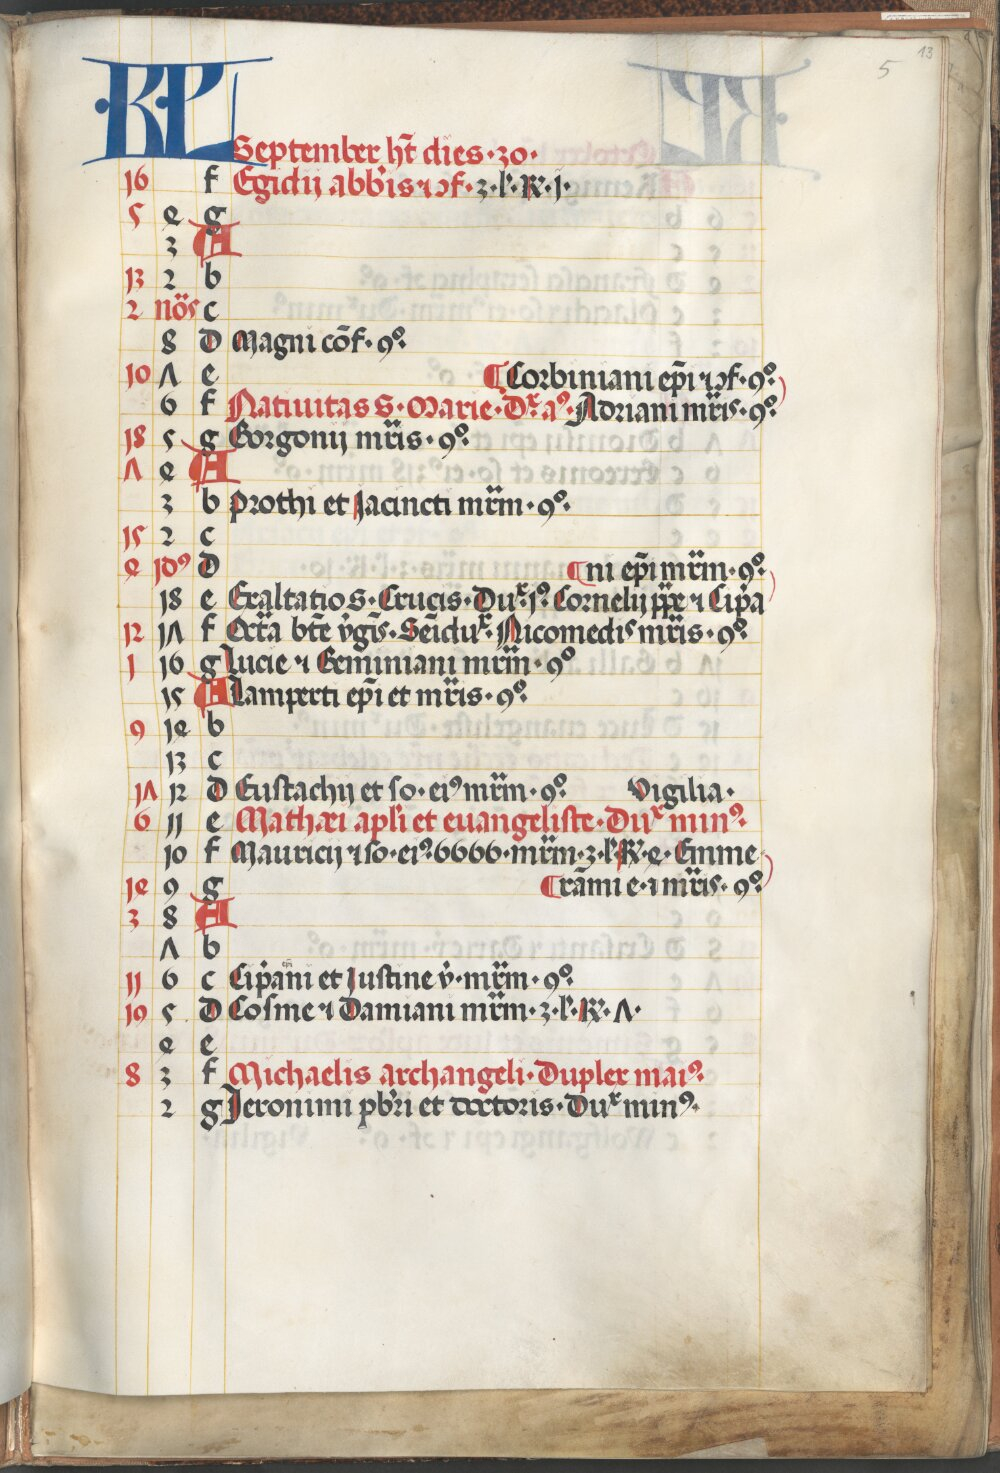 5 13
KL
September ht̄ dies · 30 ·
16 f Egidij abb'is ⁊ ɔf · 3 · l' · R̸ · j ·
5 e g
3 A
13 2 b
2 nōs c
8 d Magni cōf · 9º ·
10 Λ e ¶ Corbiniani ep̄i ⁊ ɔf · 9º ·
6 f Natiuitas S · Marie · Dx̄ · aº · Adriani mr̄is · 9º
18 5 g Gorgonij mr̄is · 9º ·
Λ e A
3 b Prothi et Jacincti mr̄m · 9º ·
15 2 c
e jd9 d ¶ ni ep̄i mr̄m · 9º ·
18 e Exaltatio S · Crucis · Dux · jº · Cornelij pp̄e ⁊ Cip̄a
12 jΛ f Octā bt̄e v̇gīs · Sēidux · Nicomedis mr̄is · 9º ·
1 16 g Lucie ⁊ Geminiani mr̄m · 9º
15 A Lamperti ep̄i et mr̄is · 9º
9 je b
13 c
jΛ 12 d Eustachij et so · ei9 mr̄m · 9º · Vigilia ·
6 jj e Mathæi apl̄i et euangeliste · Dux min9 ·
10 f Mauricij ⁊ so · ei9 · 6666 · mr̄m · 3 · l' · R̸ · e · Emme
je 9 g ¶ rāmi e · ⁊ mr̄is · 9º
3 8 A
Λ b
jj 6 c Cip̄ani et Justine v̇ · mr̄m · 9º ·
19 5 d Cosme ⁊ Damiani mr̄m · 3 · l' · R̸ · Λ ·
e e
8 3 f Michaelis archangeli · Duplex mai9 ·
2 g Jeronimi pb'ri et doctoris · Dux min9 ·